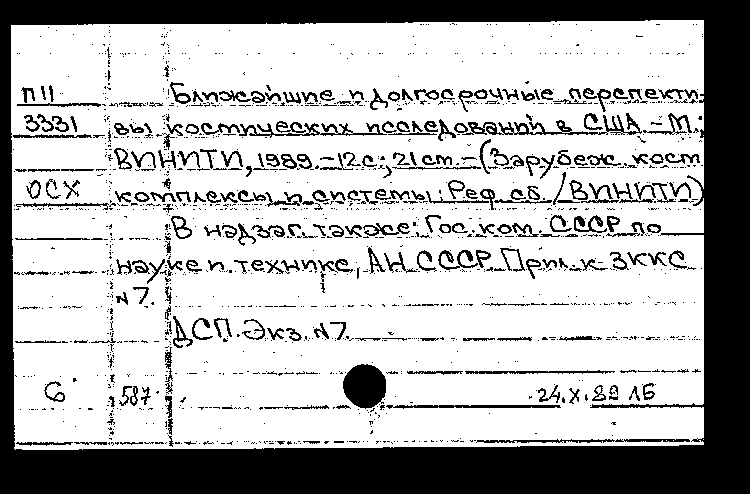 П11 Ближайшие и долгосрочные перспекти-
3331 вы космических исследований в США. - М.;
ВИНИТИ, 1989. - 12 с.; 21 см. - (Зарубеж. косм
ОСХ комплексы и системы: Реф. сб. / ВИНИТИ)
В надзаг. также: Гос. ком. СССР по
науке и технике, АН СССР. Прил. к ЗККС
N 7.
ДСП. Экз. N 7
6 587 24.X.89 ЛБ